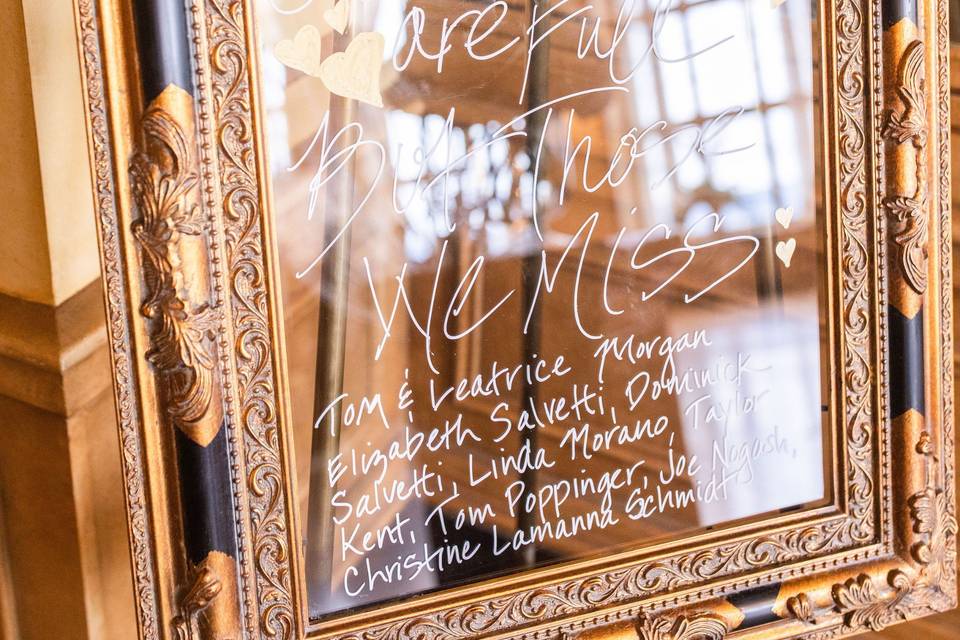 are Full
But Those
We Miss
Tom & Leatrice Morgan
Elizabeth Salvetti, Dominick
Salvetti, Linda Morano, Taylor
Kent, Tom Poppinger, Joe Nogosh,
Christine Lamanna Schmidt